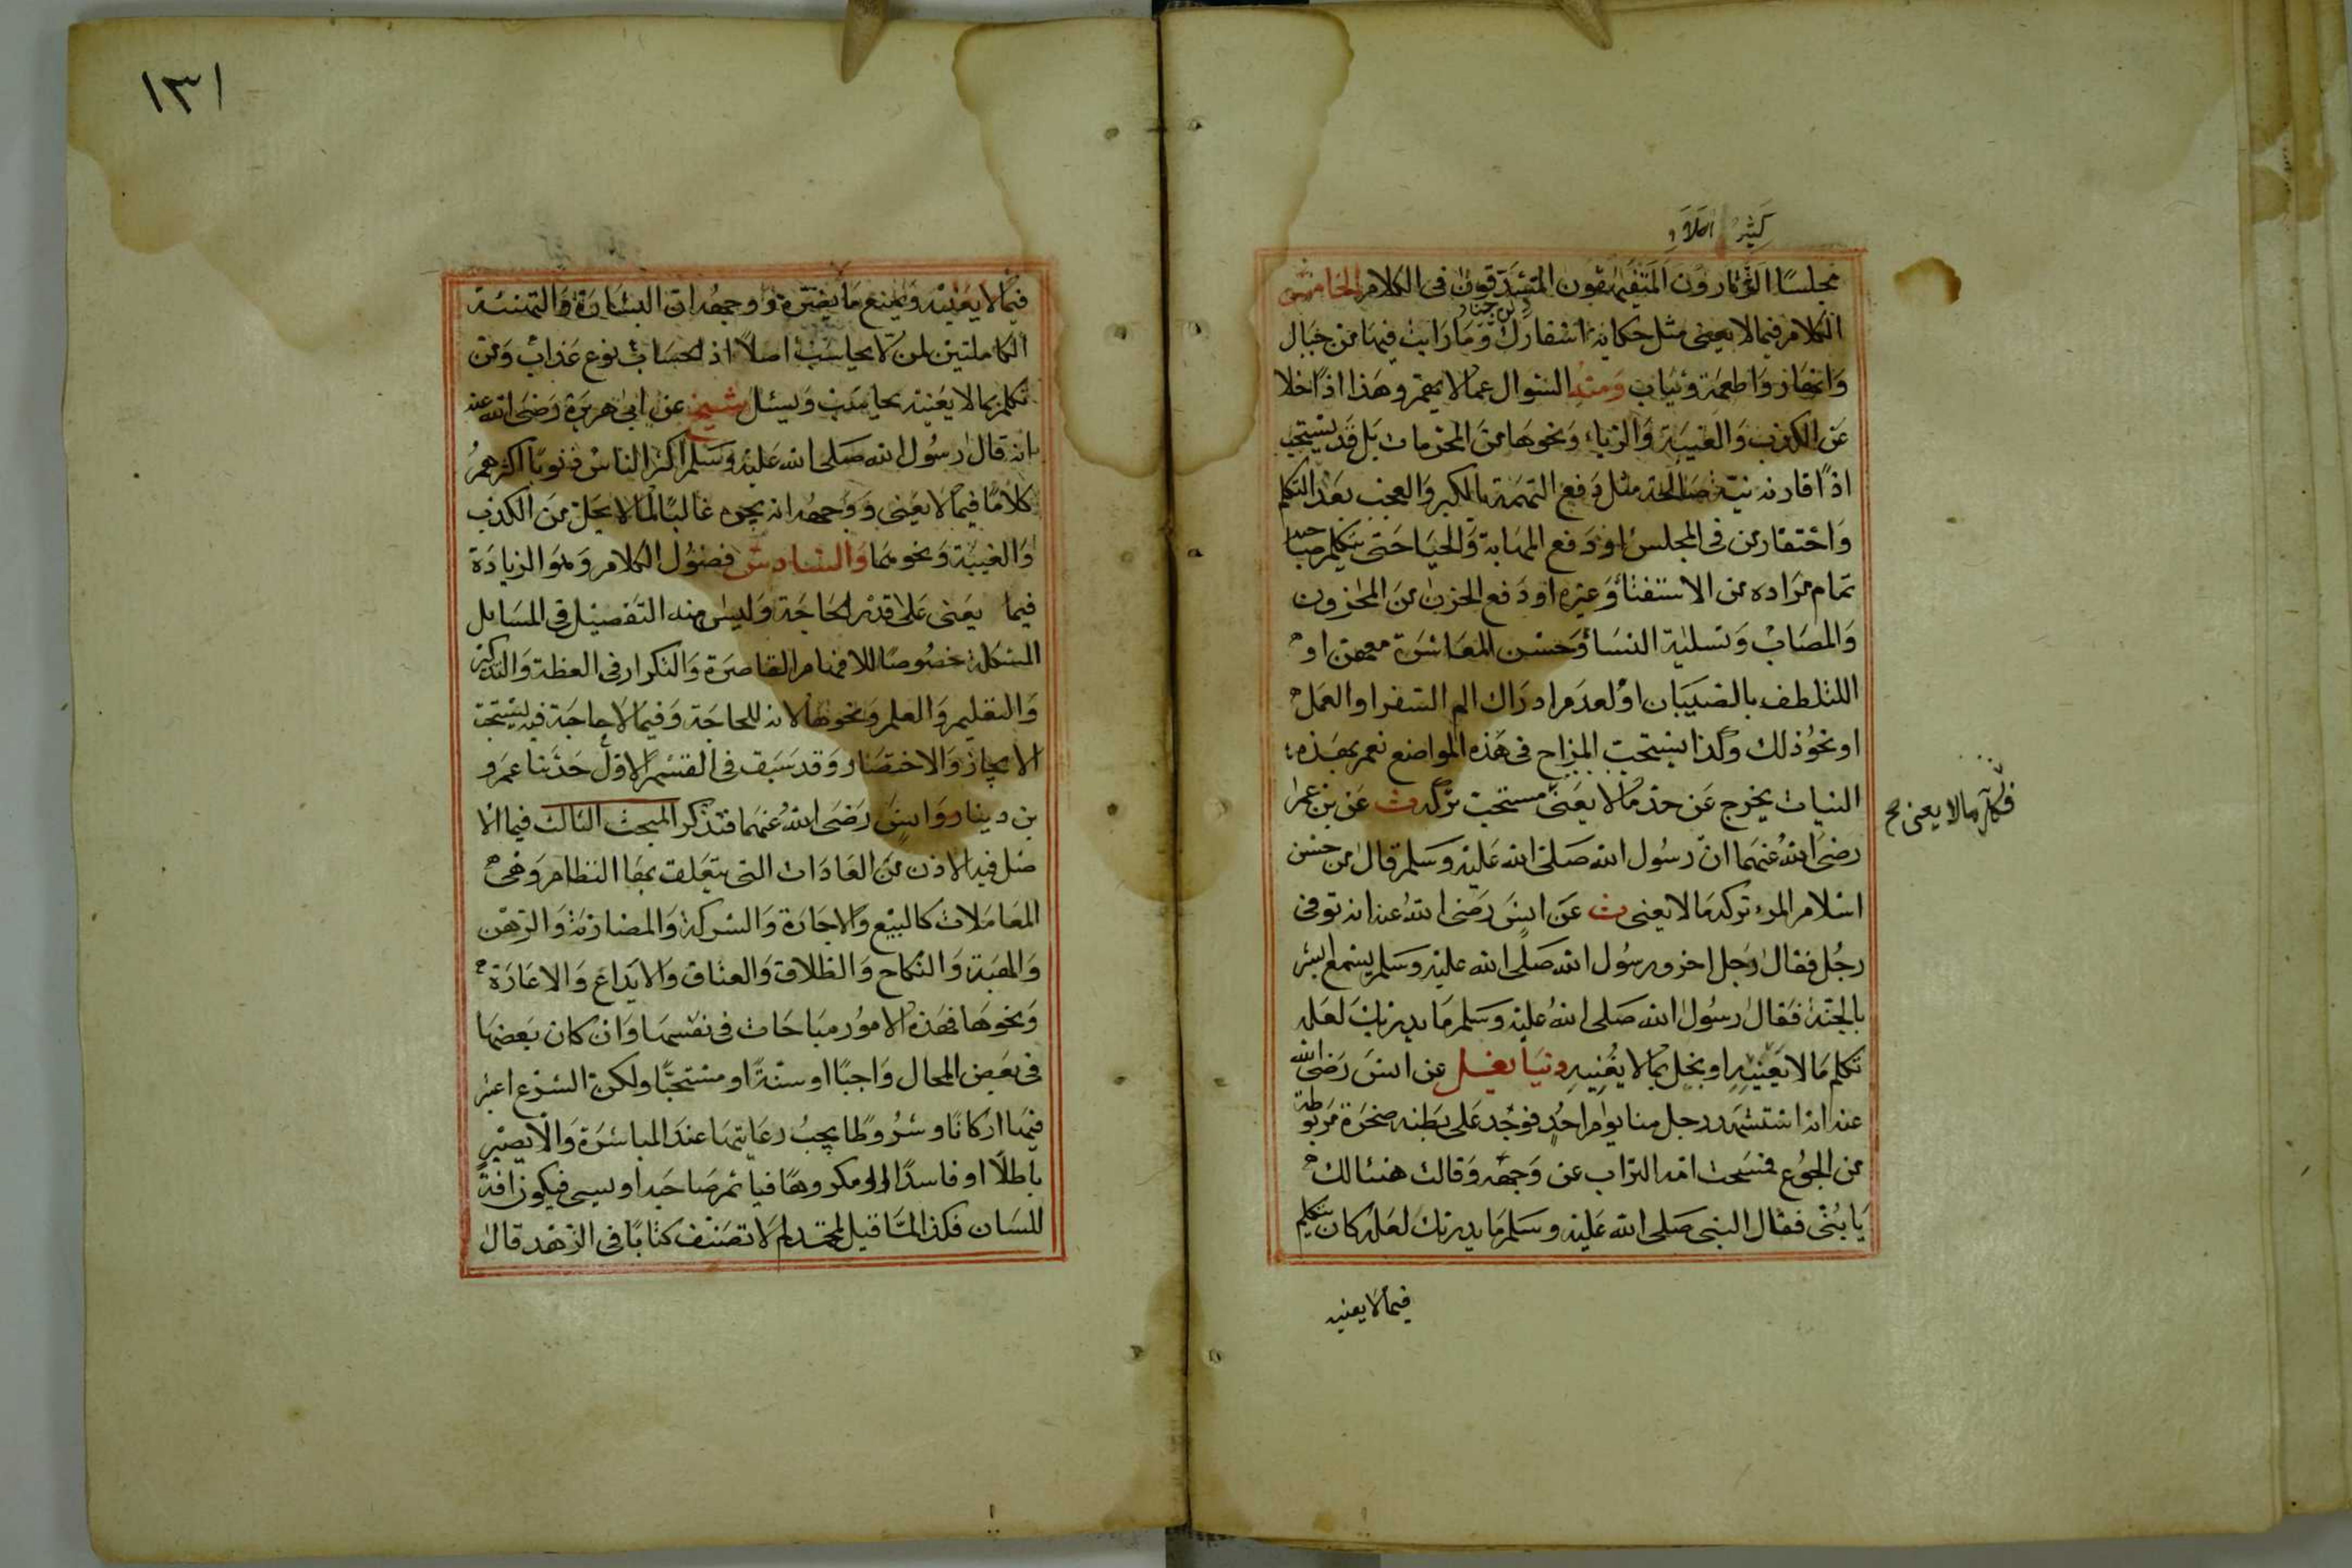 كثير الكلام
مجلسا الثرثارون المتفيهقون المتشدقون فى الكلام الخامس
الكلام فيما لا يعنى مثل حكاية اسفارك وما رايت فيها من جبال
وانهار واطعمة وثياب ومنه السؤال عما لا يهم وهذا اذا خلا
عن الكذب والغيبة والرياء ونحوها من المحرمات بل قد يستحب
اذا قارنه نية صالحة مثل دفع التهمة بالكبر والعجب بعدم التكلم
واحتقار من فى المجلس او دفع المهابة والحيا حتى يتكلم صاحبه
تمام مراده من الاستفتاء وغيره او دفع الحزن من المحزون
والمصاب وتسلية النساء وحسن المعاشرة معهن او
التلطف بالصبيان او لعدم ادراك الم السفر او العمل
او نحو ذلك وكذا يستحب المزاح فى هذه المواضع نعم بهذه
النيات يخرج عن حد ما لا يعنى مستحب تركه ت عن بن عمر
فكل ما لا يعنى صح
رضى الله عنهما ان رسول الله صلى الله عليه وسلم قال من حسن
اسلام المرء تركه ما لا يعنى ت عن انس رضى الله عنه انه توفى
رجل فقال رجل اخر ورسول الله صلى الله عليه وسلم يسمع ابشر
بالجنة فقال رسول الله صلى الله عليه وسلم ما يدريك لعله
تكلم ما لا يعنيه او بخل بما لا يغنيه دنيا يعلى عن انس رضى الله
عنه انه استشهد رجل منا يوم احد فوجد على بطنه صخرة مربوطة
من الجوع فمسحت امه التراب عن وجهه وقالت هنئا لك
يا بنى فقال النبى صلى الله عليه وسلم ما يدريك لعله كان يتكلم
فيما لا يعنيه
١٣١
فيما لا يعنيه ويمنع ما يضره ووجهه ان البشارة والتهنئة
الكاملتين لمن لا يحاسب اصلا اذ الحساب نوع عذاب ومن
تكلم بما لا يعنيه يحاسب ويسئل شيخ عن ابى هريرة رضى الله عنه
انه قال رسول الله صلى الله عليه وسلم اكثر الناس ذنوبا اكثرهم
كلاما فيما لا يعنى ووجهه انه يجره غالبا لما لا يحل من الكذب
والغيبة ونحوهما والسادس فضول الكلام وهو الزيادة
فيما يعنى على قدر الحاجة وليس منه التفصيل فى المسايل
المشكلة خصوصا للافهام القاصرة والتكرار فى العظة والتذكير
والتعليم والعلم ونحوها لانه للحاجة وفيما لا حاجة فيه يستحب
الايجاز والاختصار وقد سبق فى القسم الاول حديثا عمرو
بن دينار وانس رضى الله عنهما فتذكر المبحث الثالث فيما الا
صل فيه الاذن من العادات التى يتعلق بها النظام وهى
المعاملات كالبيع والاجارة والشركة والمضاربة والرهن
والهبة والنكاح والطلاق والعتاق والايداع والاعارة
ونحوها فهذه الامور مباحات فى نفسها وان كان بعضها
فى بعض المحال واجبا او سنة او مستحبا ولكن الشرع اعتبر
فيها اركانا وشروطا يجب رعايتها عند المباشرة والا يصير
باطلا او فاسدا او مكروها فياثم صاحبه او يسى فيكون افة
للسان فلذا لما قيل لمحمد لم لا تصنف كتابا فى الزهد قال